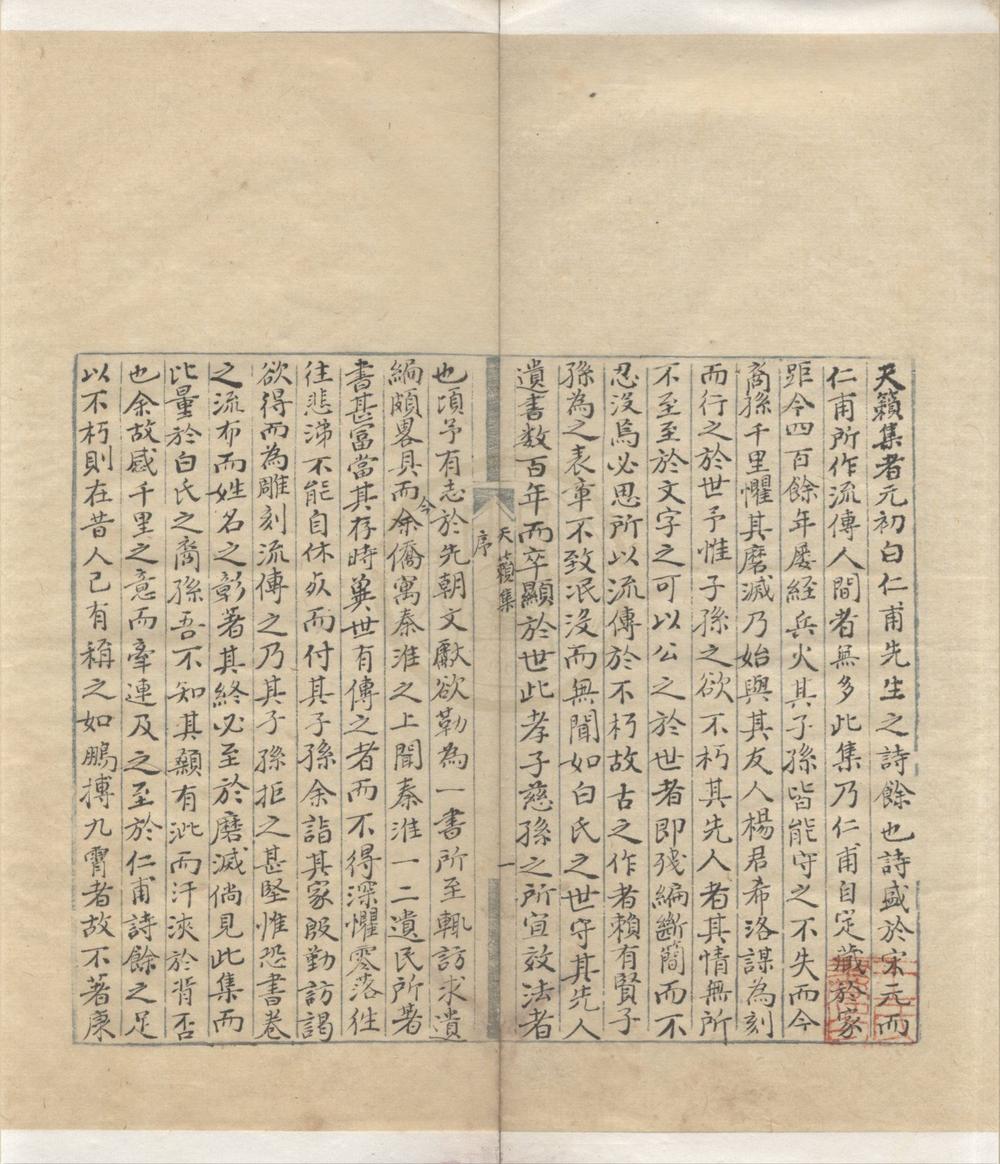 天籟集者元初白仁甫先生之詩餘也詩盛於宋元而
仁甫所作流傳人間者無多此集乃仁甫自定藏於家
距今四百餘年屡經兵火其子孫皆能守之不失而今
裔孫千里懼其磨滅乃始與其友人楊君希洛謀為刻
而行之於世予惟子孫之欲不朽其先人者其情無所
不至至於文字之可以公之於世者即殘編斷簡而不
忍沒焉必思所以流傳於不朽故古之作者賴有賢子
孫為之表章不致泯沒而無聞如白氏之世守其先人
遺書数百年而卒顯於世此孝子慈孫之所宜效法者
天籟集
序
一
也項予有志於先朝文獻欲勒為一書所至輒訪求遺
編頗畧具而今余僑寓秦淮之上聞秦淮一二遺民所著
書甚富當其存時兾世有傳之者而不得深懼零落往
往悲涕不能自休死而付其子孫余詣其家殷勤訪謁
欲得而為雕刻流傳之乃其子孫拒之甚堅惟恐書卷
之流布而姓名之彰著其終必至於磨滅倘見此集而
比量於白氏之裔孫吾不知其顙有泚而汗浹於背否
也余故感千里之意而牽連及之至於仁甫詩餘之足
以不朽則在昔人已有稱之如鵬摶九霄者故不著康